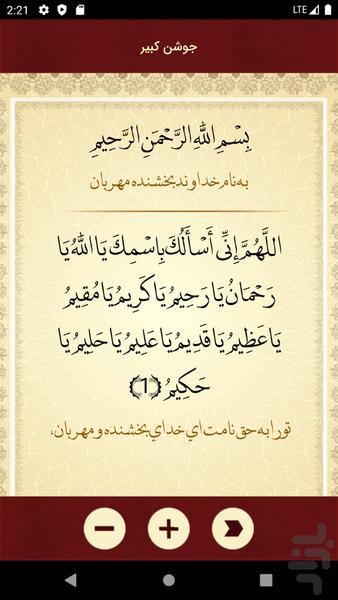 2:21
LTE
جوشن کبیر
بِسْمِ اللَّهِ الرَّحْمَنِ الرَّحِيمِ
به نام خداوند بخشنده مهربان
اللَّهُمَّ إِنِّي أَسْأَلُكَ بِاسْمِكَ يَا اللَّهُ يَا
رَحْمَانُ يَا رَحِيمُ يَا كَرِيمُ يَا مُقِيمُ
يَا عَظِيمُ يَا قَدِيمُ يَا عَلِيمُ يَا حَلِيمُ يَا
حَكِيمُ (1)
تو را به حق نامت اي خداي بخشنده و مهربان،
بازار